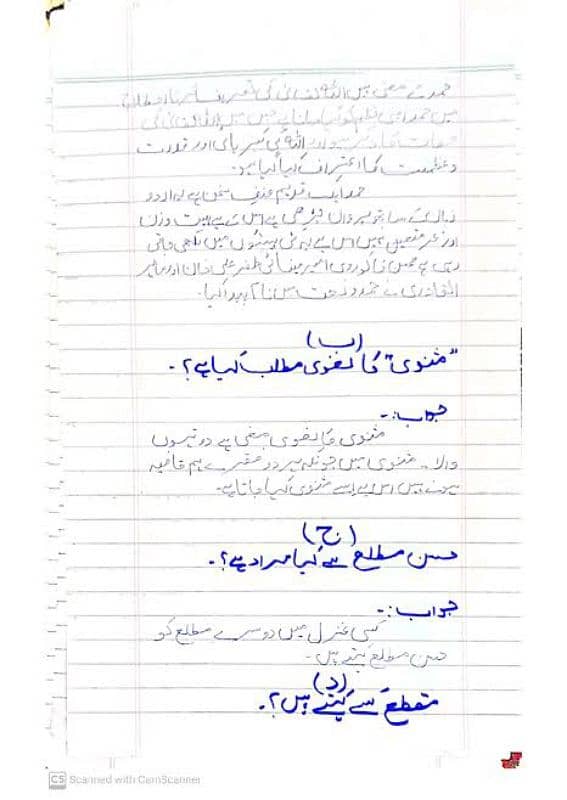 حمد کے معنی ہیں اللہ تعالیٰ کی تعریف کرنا۔ اصطلاح
میں حمد اس نظم کو کہا جاتا ہے جس میں اللہ تعالیٰ کی
صفات کا ذکر ہو اور اللہ کی کبریائی اور قدرت
و عظمت کا اعتراف کیا گیا ہو۔
حمد ایک قدیم صنف سخن ہے یہ اردو
زبان کے ساتھ پروان چڑھی ہے اس کے ہیت وزن
اور بحر متعین نہیں اس لیے یہ کئی ہیئتوں میں لکھی جاتی
رہی ہے محسن کاکوروی امیر مینائی ظفر علی خان اور ماہر
القادری نے حمد و نعت میں نام پیدا کیا۔
(ب)
"مثنوی" کا لغوی مطلب کیا ہے؟۔
جواب:-
مثنوی کا لغوی معنی ہے دو تہوں
والا۔ مثنوی میں چونکہ ہر دو مصرعے ہم قافیہ
ہوتے ہیں اس لیے اسے مثنوی کہا جاتا ہے۔
(ج)
حسن مطلع سے کیا مراد ہے؟۔
جواب:-
کسی غزل میں دوسرے مطلع کو
حسن مطلع کہتے ہیں۔
(د)
مقطع کسے کہتے ہیں؟۔
CS Scanned with CamScanner